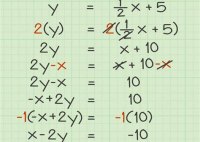 y = 1/2 x + 5
2(y) = 2(1/2 x + 5)
2y = x + 10
2y-x = x + 10 -x
2y-x = 10
-x+2y = 10
-1(-x+2y) = -1(10)
x-2y = -10